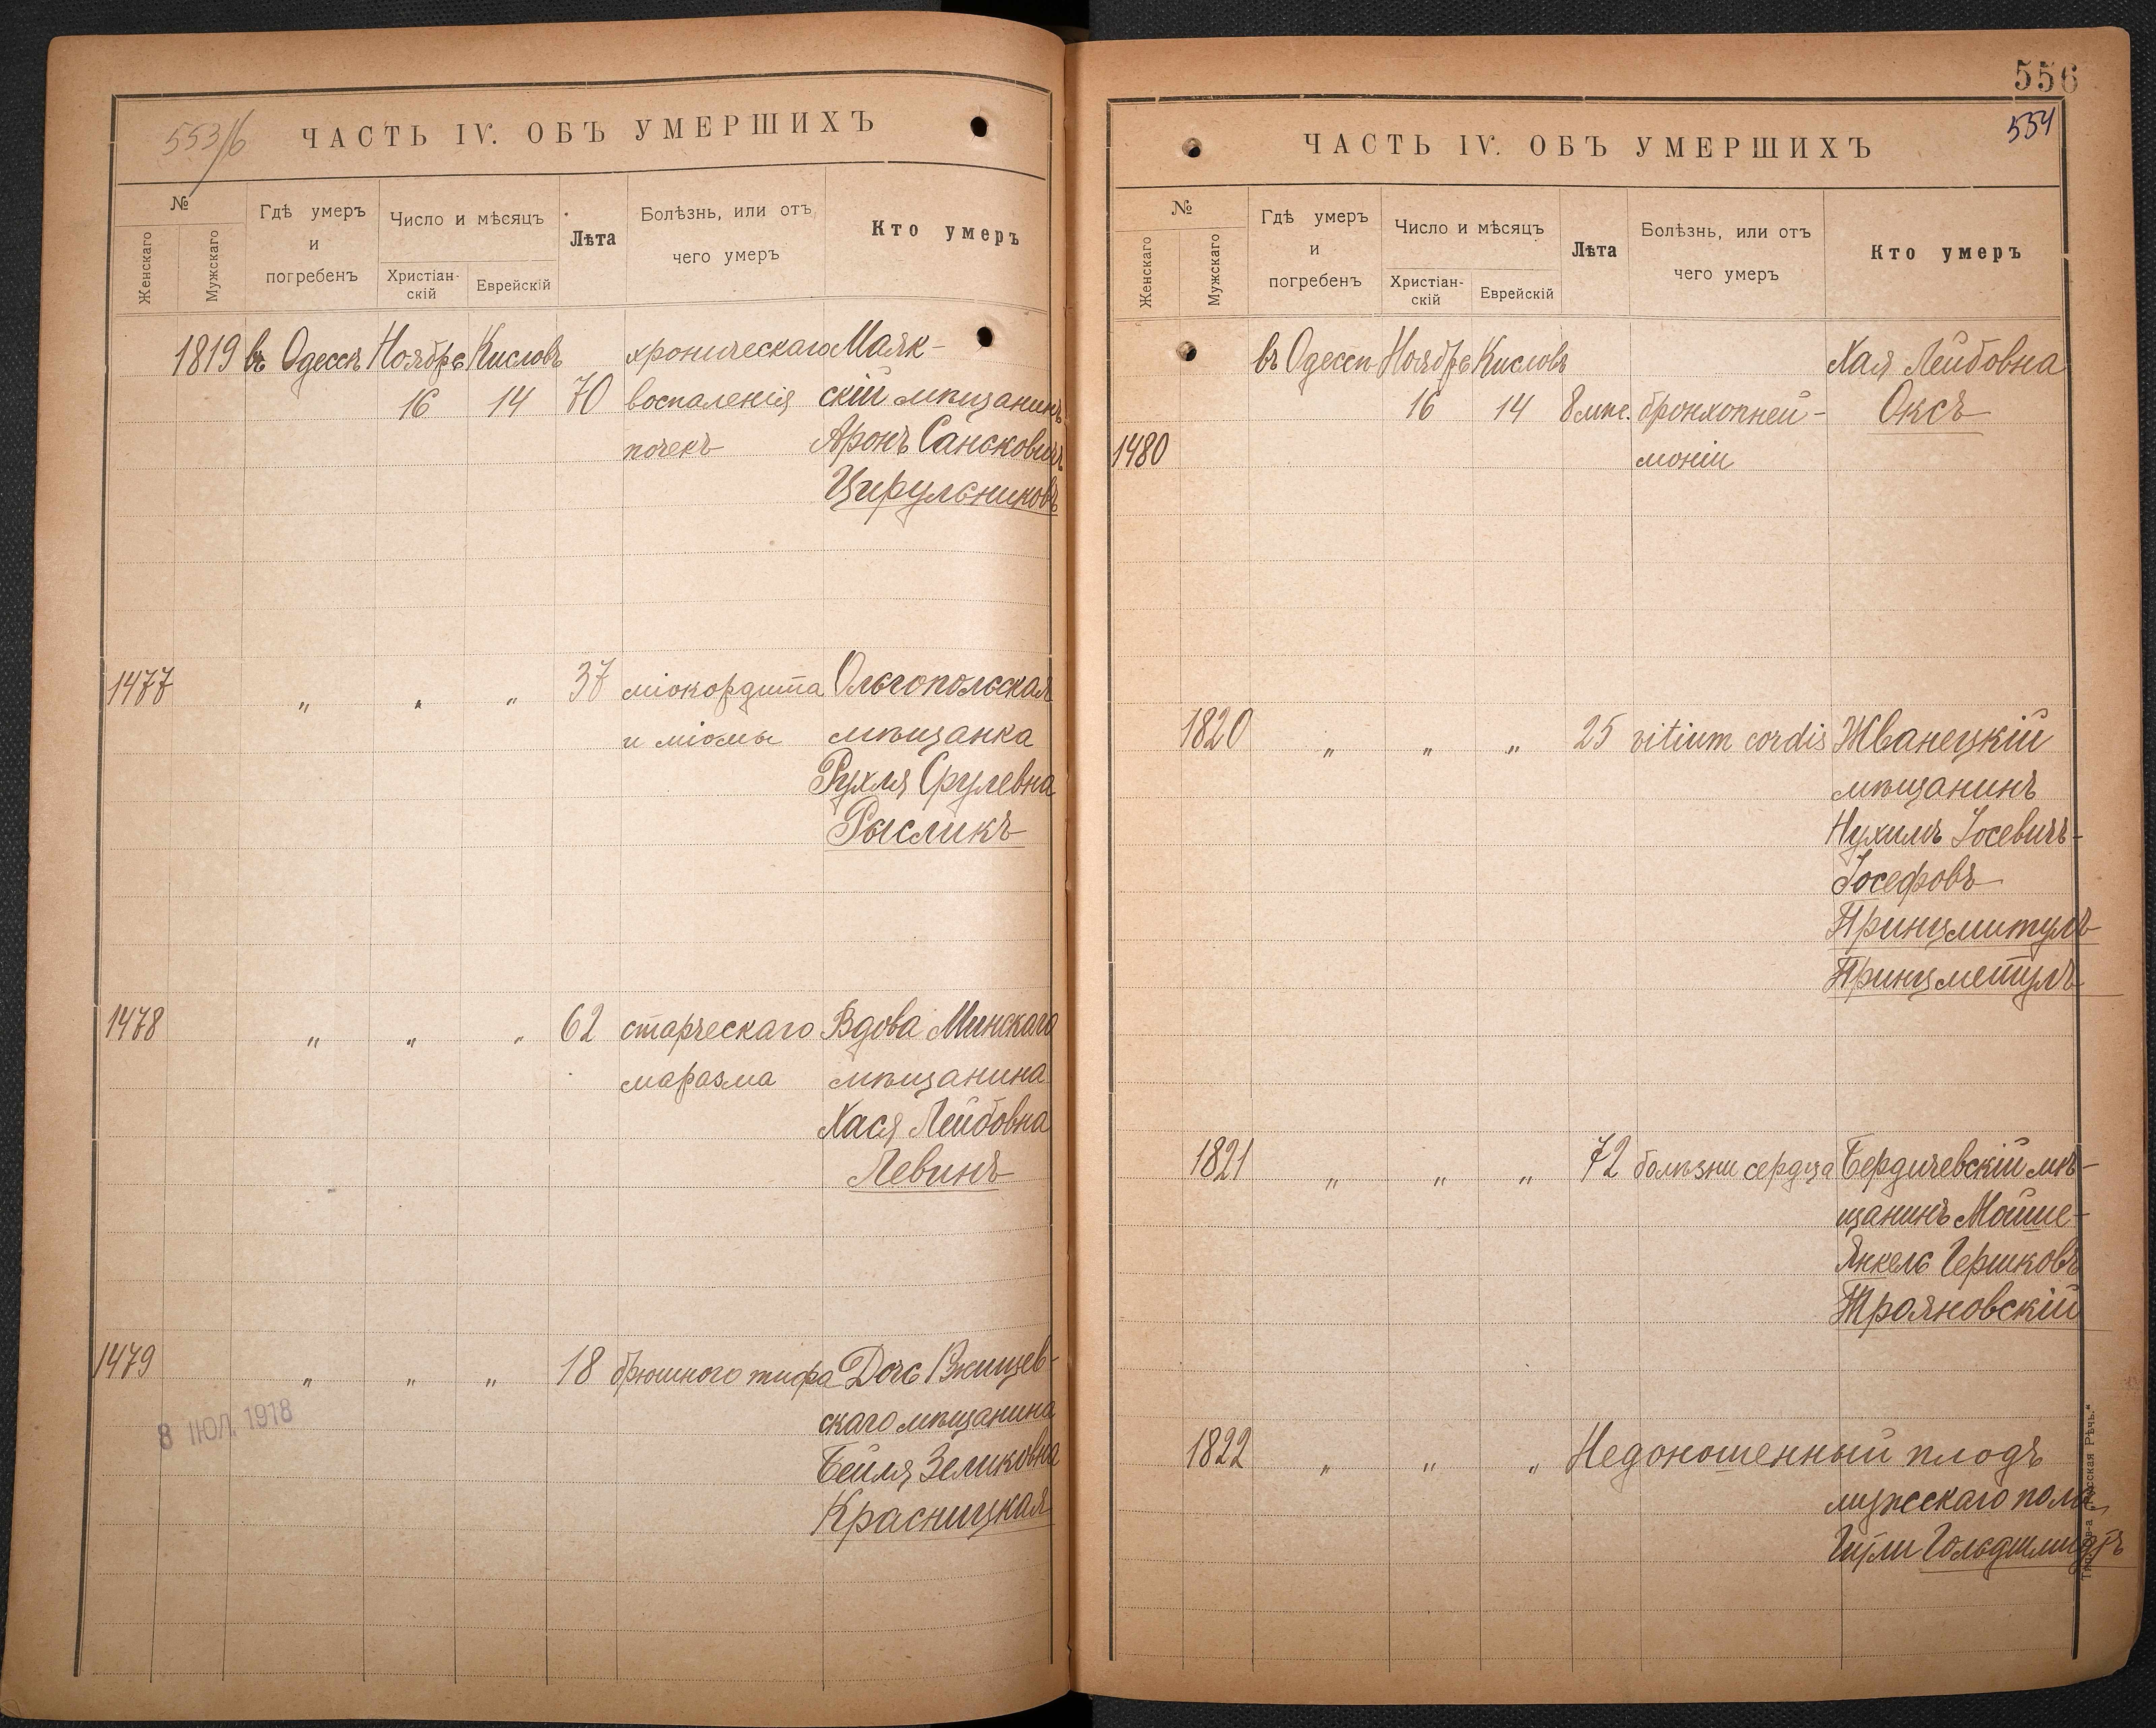 553/6
ЧАСТЬ IV. ОБЪ УМЕРШИХЪ
№
Женскаго
Мужскаго
Гдѣ умеръ
и
погребенъ
Число и мѣсяцъ
Христіан-
скій
Еврейскій
Лѣта
Болѣзнь, или отъ
чего умеръ
Кто умеръ
1819 въ Одессѣ Ноября Кисловъ хроническаго Маяк-
16 14 70 воспаленія скій мѣщанинъ
почекъ Аронъ
Цирульниковъ
1477 " " " 37 міокордита Ольгопольская
и міомы мѣщанка
Рухля Срулевна
Рысликъ
1478 " " " 62 старческаго Вдова Минскаго
маразма мѣщанина
Хася Лейбовна
Левинъ
1479 " " " 18 брюшного тифа Дочь Ржищев-
скаго мѣщанина
Бейля Зеликовна
Красницкая
8 ІЮЛ. 1918
556
554
ЧАСТЬ IV. ОБЪ УМЕРШИХЪ
№
Женскаго
Мужскаго
Гдѣ умеръ
и
погребенъ
Число и мѣсяцъ
Христіан-
скій
Еврейскій
Лѣта
Болѣзнь, или отъ
чего умеръ
Кто умеръ
въ Одессѣ Ноября Кисловъ Хая Лейбовна
16 14 8 мѣс. бронхопней- Оксъ
1480 моніи
1820 " " " 25 vitium cordis Жванецкій
мѣщанинъ
Нухимъ Іосевичъ-
Іосефовъ
Принцмитулъ
Принцметулъ
1821 " " " 72 болѣзни сердца Бердичевскій мѣ-
щанинъ Мойше-
Янкель Гершковъ
Трояновскій
1822 " " " Недоношенный плодъ
мужескаго пола
Гольдшмидтъ